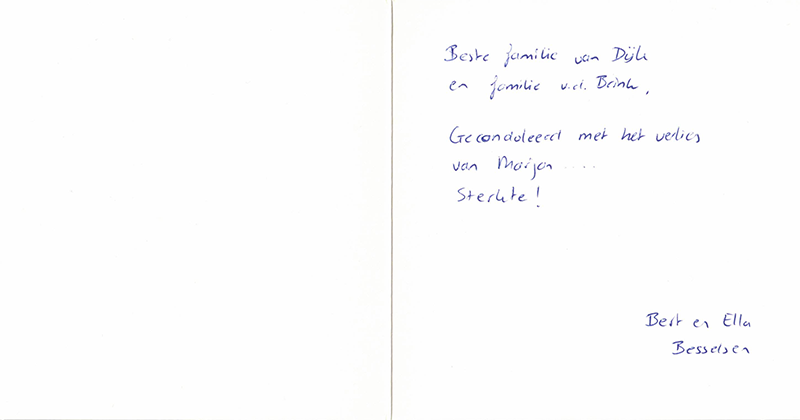 Beste familie van Dijk
en familie v.d. Brink,
Gecondoleerd met het verlies
van Marjan ....
Sterkte!
Bert en Ella
Besselsen